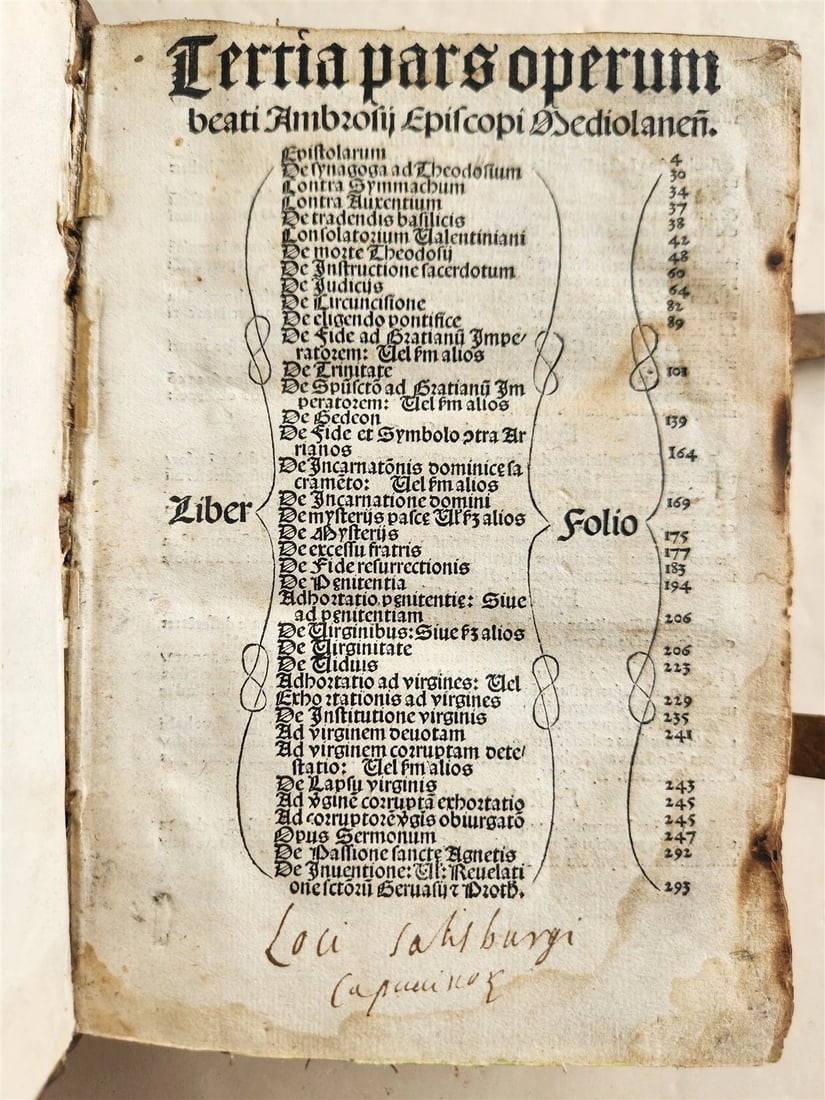 Tertia pars operum
beati Ambrosij Episcopi Mediolaneñ.
Epistolarum 4
De synagoga ad Theodosium 30
Contra Symmachum 34
Contra Auxentium 37
De tradendis basilicis 38
Consolatorium Ualentiniani 42
De morte Theodosij 48
De Instructione sacerdotum 60
De Judicijs 64
De Circuncisione 82
De eligendo pontifice 89
De Fide ad Gratianũ Impe/
ratorem: Uel fm alios
De Trinitate 101
De Spũsctõ ad Gratianũ Im
peratorem: Uel fm alios
De Gedeon 139
De Fide et Symbolo ↄtra Ar
rianos 164
De Incarnatõnis dominice sa
cramẽto: Uel fm alios
De Incarnatione domini 169
Liber De mysterijs pasce Ul fꝫ alios Folio
De Mysterijs 175
De excessu fratris 177
De Fide resurrectionis 183
De Pęnitentia 194
Adhortatio pęnitentię: Siue
ad pęnitentiam 206
De Uirginibus: Siue fꝫ alios
De Uirginitate 206
De Uiduis 223
Adhortatio ad virgines: Uel
Exhortationis ad virgines 229
De Institutione virginis 235
Ad virginem deuotam 241
Ad virginem corruptam dete/
statio: Uel fm alios
De Lapsu virginis 243
Ad v̾ginẽ corruptã exhortatio 245
Ad corruptorẽ v̾gis obiurgatõ 245
Opus Sermonum 247
De Passione sancte Agnetis 292
De Inuentione: Ul: Reuelati
one sctõrũ Geruasij ⁊ Proth. 293
Loci Salisburgi